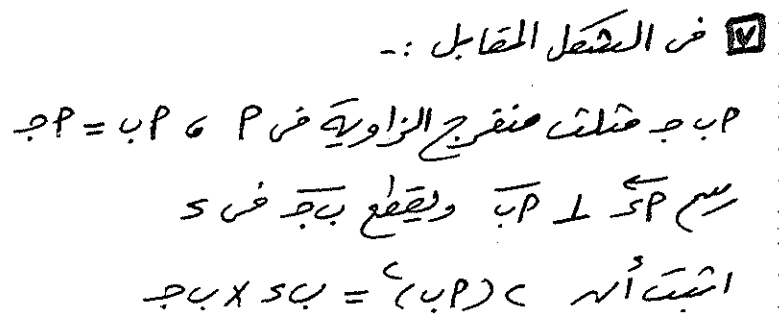 ٧ فى الشكل المقابل :-
أ ب جـ مثلث منفرج الزاوية فى أ ، أ ب = أ جـ
رسم أ د ⊥ أ ب ويقطع ب جـ فى د
اثبت أن ٢ (أ ب)٢ = ب د × ب جـ